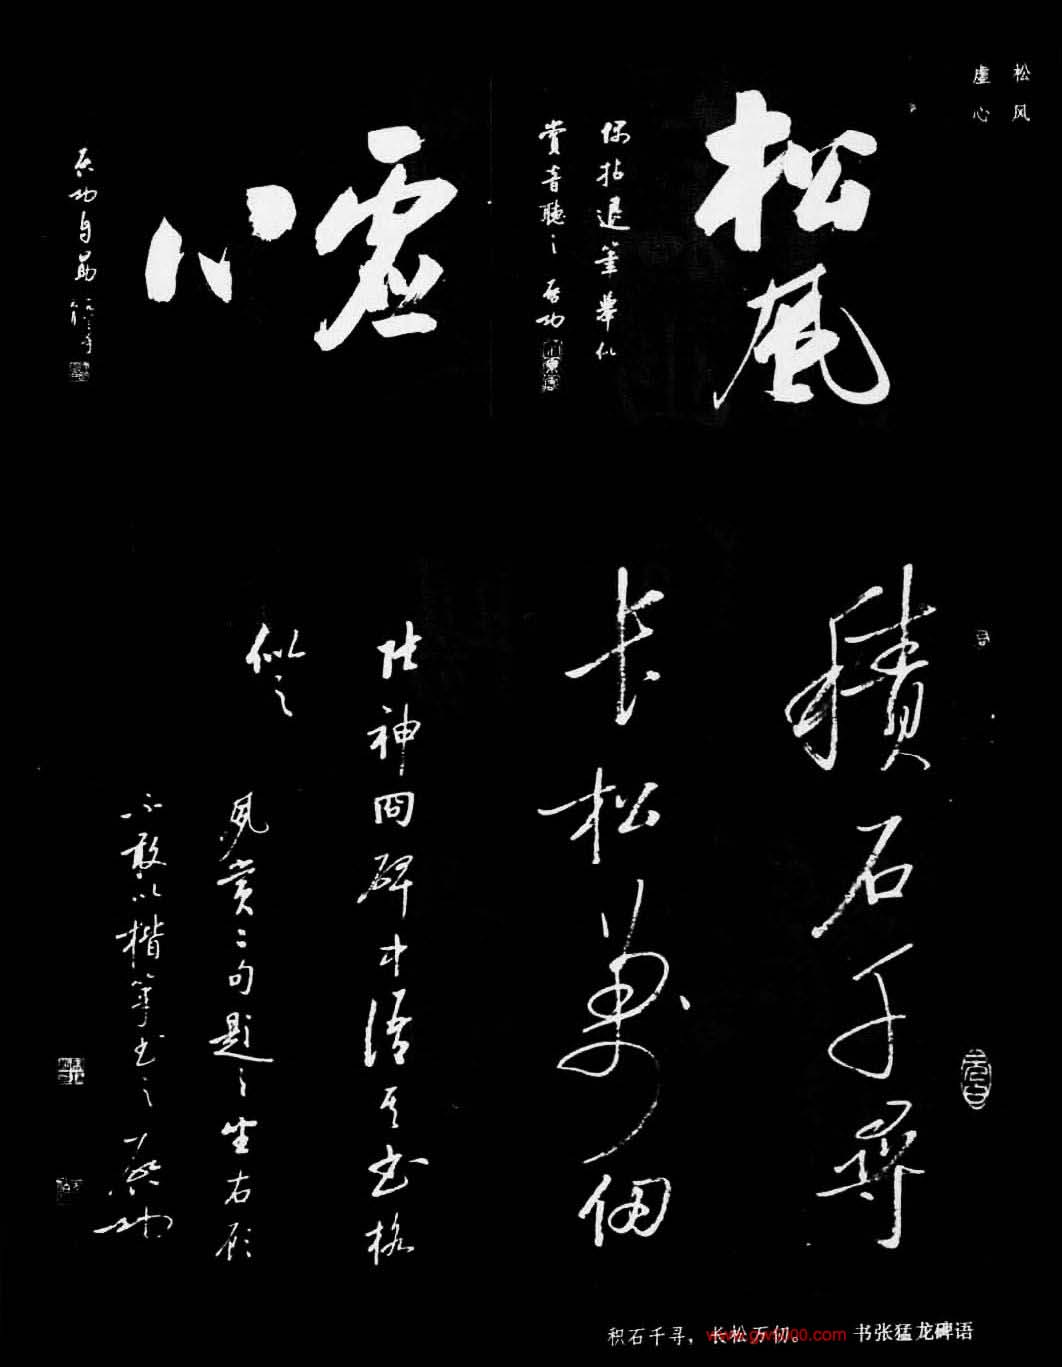 松风
虚心
松風
偶拈退筆舉似
賞音聽之 啟功
虛
心
啟功自勗
積石千尋
長松萬仞
張神冏碑中語其書格
似之
夙賞二句題之坐右顧
不敢以楷筆書之 啟功
积石千寻，长松万仞。 书张猛龙碑语